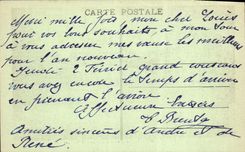 CARTE POSTALE
Merci mille fois mon cher Louis
pour vos bons souhaits à mon tour
à vous adresser mes vœux les meilleurs
pour l'an nouveau.
2 Février grand
vous avez encore le temps d'arriver
en prenant l'avion
Affectueux baisers
Amitiés sincères d'André et de
René